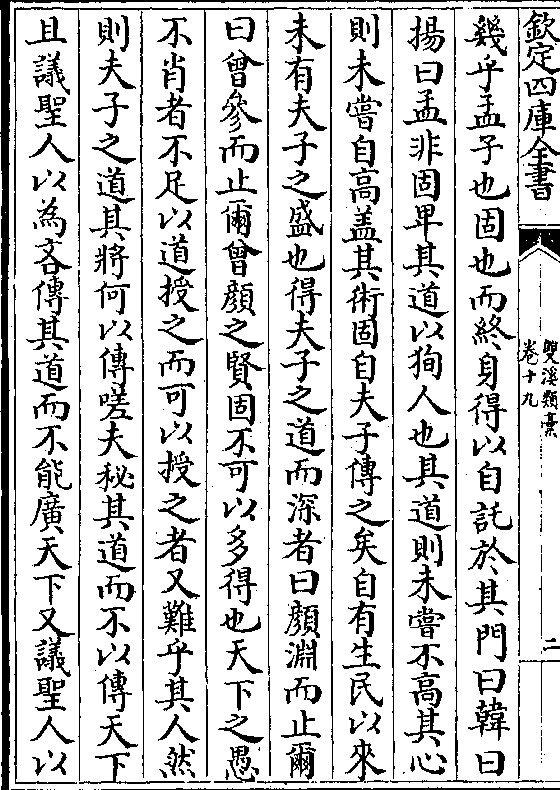 欽定四庫全書
雙溪類稾
卷十九
二
幾乎孟子也固也而終身得以自託於其門曰韓曰
揚曰孟非固卑其道以狥人也其道則未嘗不高其心
則未嘗自高盖其術固自夫子傳之矣自有生民以來
未有夫子之盛也得夫子之道而深者曰顔淵而止爾
曰曾參而止爾曾顔之賢固不可以多得也天下之愚
不肖者不足以道授之而可以授之者又難乎其人然
則夫子之道其將何以傳嗟夫秘其道而不以傳天下
且議聖人以為吝傳其道而不能廣天下又議聖人以